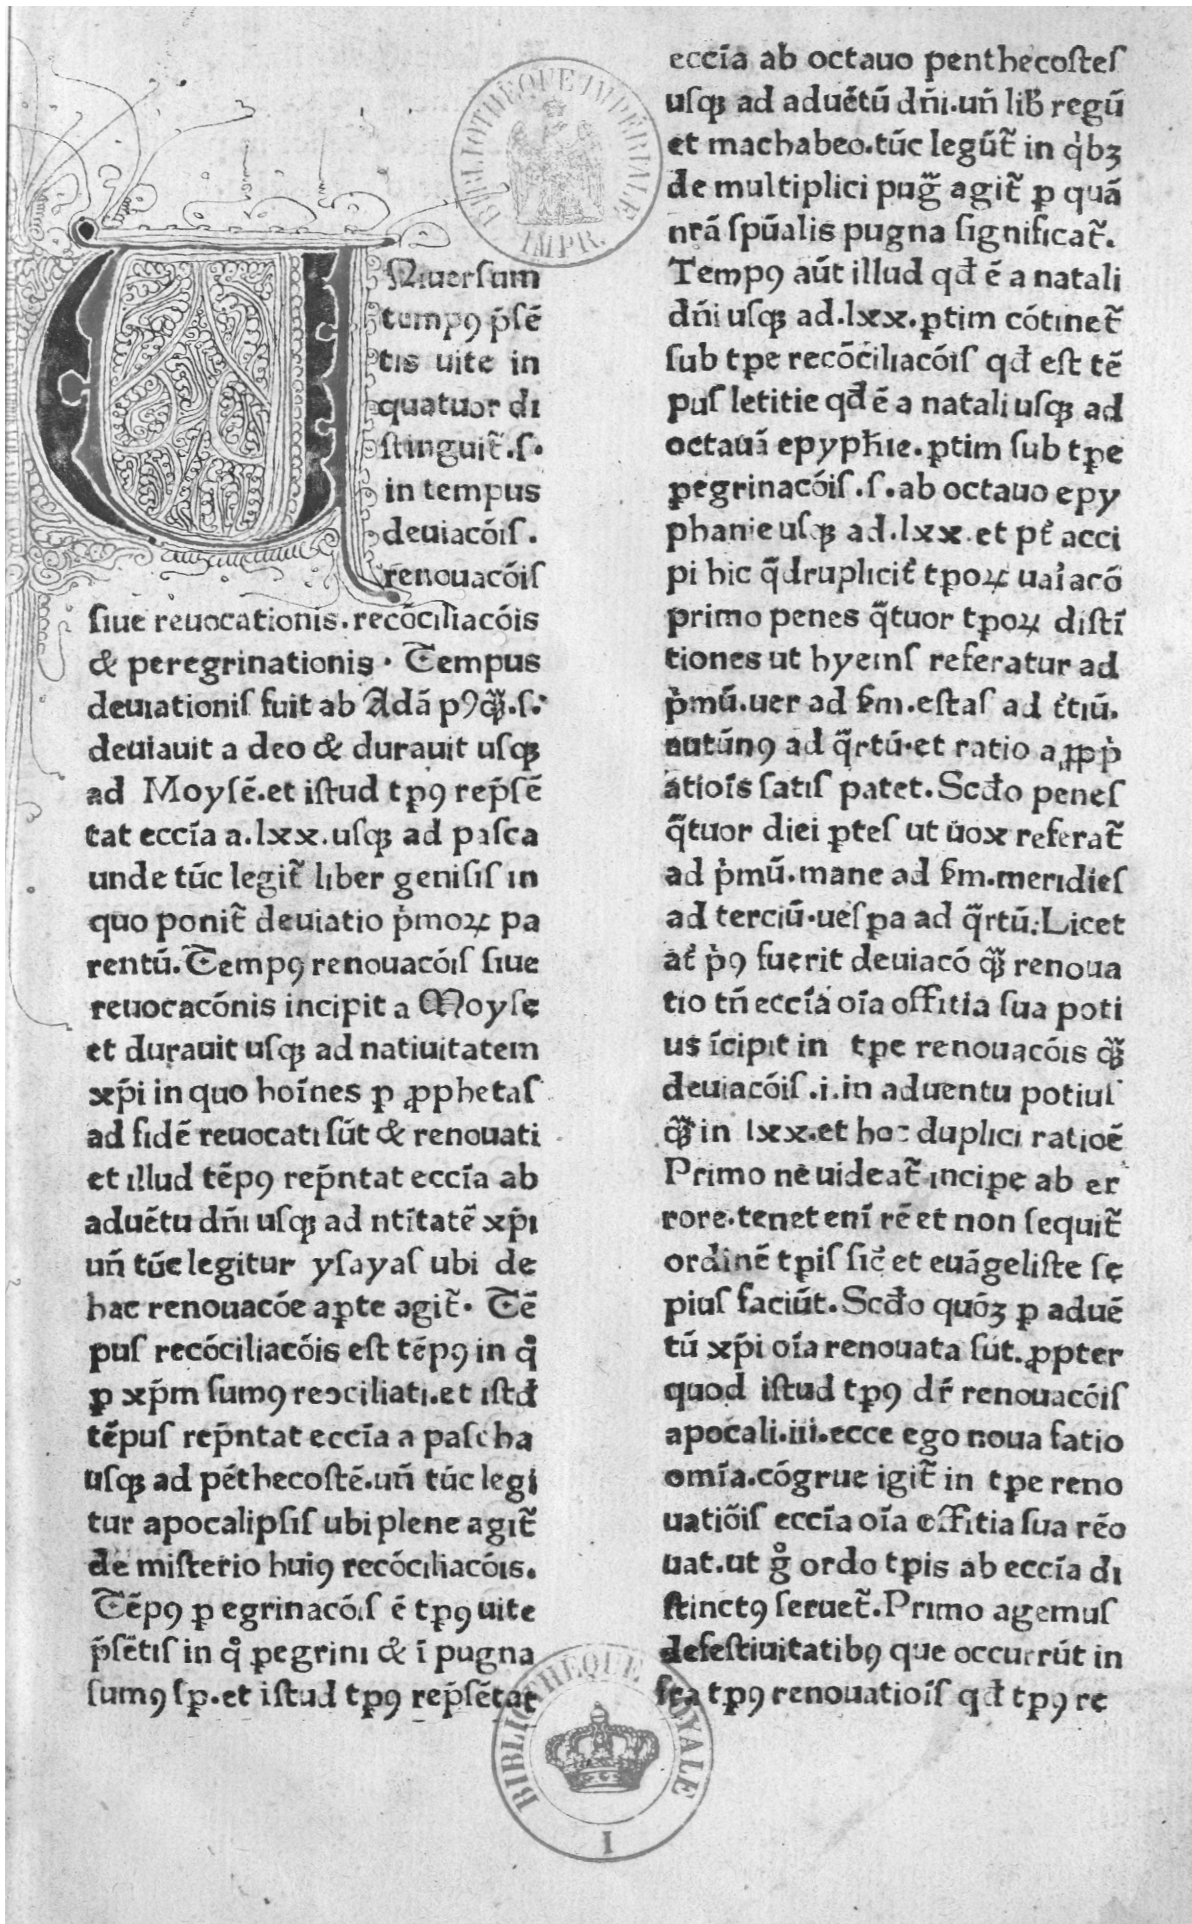 BIBLIOTHÈQUE IMPÉRIALE
IMPR.
UNiuersum
temp⁹ p̄sē
tis uite in
quatuor di
stinguit̃.s.
in tempus
deuiacōis.
renouacōis
siue reuocationis.recōciliacōis
& peregrinationis. Tempus
deuiationis fuit ab Adā pꝰq̃ꝫ.s.
deuiauit a deo & durauit usqꝫ
ad Moysē.et istud tp̱ꝰ rep̃sē
tat ecc̄ia a.lxx.usqꝫ ad pasca
unde tūc legit̃ liber genisis in
quo ponit̃ deuiatio p̍moꝝ pa
rentū.Tempꝰ renouacōis siue
reuocacōnis incipit a Moyse
et durauit usqꝫ ad natiuitatem
xp̄i in quo hoīnes ꝑ ꝓphetas
ad fidē reuocati sūt & renouati
et illud tēpꝰ rep̃ntat ecc̄ia ab
aduētu dn̄i usqꝫ ad ntītatē xp̄i
un̄ tūc legitur ysayas ubi de
hac renouacōe aꝑte agit̃. Tē
pus recōciliacōis est tēpꝰ in q̊
ꝑ xp̄m sumꝰ reↄciliati.et istđ
tēpus rep̃ntat ecc̄ia a pascha
usqꝫ ad pēthecostē.un̄ tūc legi
tur apocalipsis ubi plene agit̃
de misterio huiꝰ recōciliacōis.
Tēpꝰ ꝑ egrinacōis ē tp̱ꝰ uite
p̄sētis in q̊ ꝑegrini & ī pugna
sumꝰ sꝑ.et istud tp̱ꝰ rep̃sētat
ecc̄ia ab octauo penthecostes
usqꝫ ad aduētū dn̄i.un̄ lib̄ regū
et machabeo.tūc legūt̃ in q̍bꝫ
de multiplici pug̃ agit̃ ꝑ quā
nrā sp̄ualis pugna significat̃.
Tempꝰ aūt illud qđ ē a natali
dn̄i usqꝫ ad.lxx.ꝑtim cōtinet̃
sub tꝑe recōciliacōis qđ est tē
pus letitie qđ ē a natali usqꝫ ad
octauā epyph̄ie.ꝑtim sub tꝑe
ꝑegrinacōis.s.ab octauo epy
phanie usqꝫ ad.lxx.et pt̄ acci
pi hic q̃druplicit̄ tꝑoꝝ uaīacō
primo penes q̃tuor tꝑoꝝ distī
tiones ut hyems referatur ad
p̍mū.uer ad ẜm.estas ad t̍tiū.
autūnꝰ ad q̃rtū.et ratio aꝓp̍
atiōis satis patet.Scđo penes
q̃tuor diei ꝑtes ut nox referat̃
ad p̍mū.mane ad ẜm.meridies
ad terciū.uesꝑa ad q̃rtū.Licet
at̄ p̍ꝰ fuerit deuiacō q̃ꝫ renoua
tio tn̄ ecc̄ia oīa offitia sua poti
us īcipit in tꝑe renouacōis q̃ꝫ
deuiacōis.i.in aduentu potius
q̃ꝫ in lxx.et hoc duplici ratiōe
Primo ne uideat̃ inciꝑe ab er
rore.tenet enī rē et non sequit̃
ordinē tꝑis sic̄ et euāgeliste sę
pius faciūt.Scđo quōꝫ ꝑ aduē
tū xp̄i oīa renouata sūt.ꝓpter
quod istud tp̱ꝰ dr̄ renouacōis
apocali.iii.ecce ego noua fatio
omīa.cōgrue igit̃ in tꝑe reno
uatiōis ecc̄ia oīa offitia sua rēo
uat.ut g̊ ordo tꝑis ab ecc̄ia di
stinctꝰ seruet̃.Primo agemus
defestiuitatibꝰ que occurrūt in
fra tp̱ꝰ renouatiōis qđ tp̱ꝰ re
BIBLIOTHÈQUE ROYALE
I